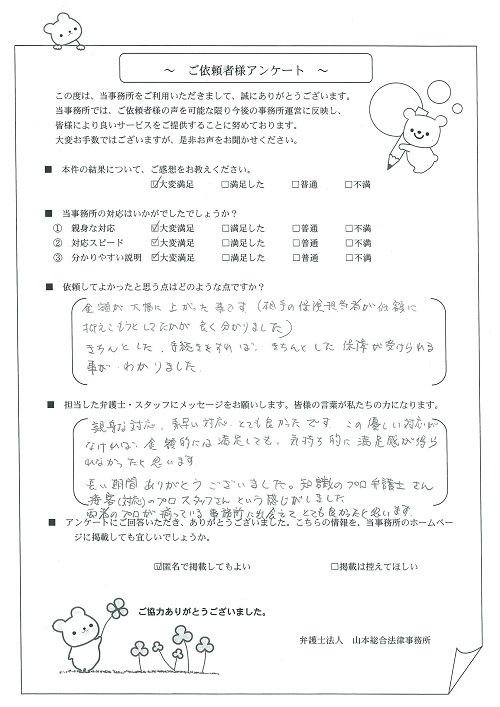 ～ ご依頼者様アンケート ～
この度は、当事務所をご利用いただきまして、誠にありがとうございます。
当事務所では、ご依頼者様の声を可能な限り今後の事務所運営に反映し、
皆様により良いサービスをご提供することに努めております。
大変お手数ではございますが、是非お声をお聞かせください。
■ 本件の結果について、ご感想をお教えください。
☑大変満足 □満足した □普通 □不満
■ 当事務所の対応はいかがでしたでしょうか？
① 親身な対応 ☑大変満足 □満足した □普通 □不満
② 対応スピード ☑大変満足 □満足した □普通 □不満
③ 分かりやすい説明 ☑大変満足 □満足した □普通 □不満
■ 依頼してよかったと思う点はどのような点ですか？
金額が大幅に上がった事です（相手の保険担当者が低額に
抑えこもうとしてたのが良く分かりました）
きちんとした、手続きをすれば、きちんとした保障が受けられる
事が、わかりました。
■ 担当した弁護士・スタッフにメッセージをお願いします。皆様の言葉が私たちの力になります。
親身な対応、素早い対応、とても良かったです この優しい対応が
なければ、金銭的には満足しても、気持ち的に満足感が得ら
れなかったと思います
長い期間ありがとうございました。知識のプロ弁護士さん
接客(対応)のプロスタッフさんという感じがしました
両者のプロが揃っている事務所に出会えてとても良かったと思います。
■ アンケートにご回答いただき、ありがとうございました。こちらの情報を、当事務所のホームペー
ジに掲載しても宜しいでしょうか。
☑匿名で掲載してもよい □掲載は控えてほしい
ご協力ありがとうございました。
弁護士法人 山本総合法律事務所